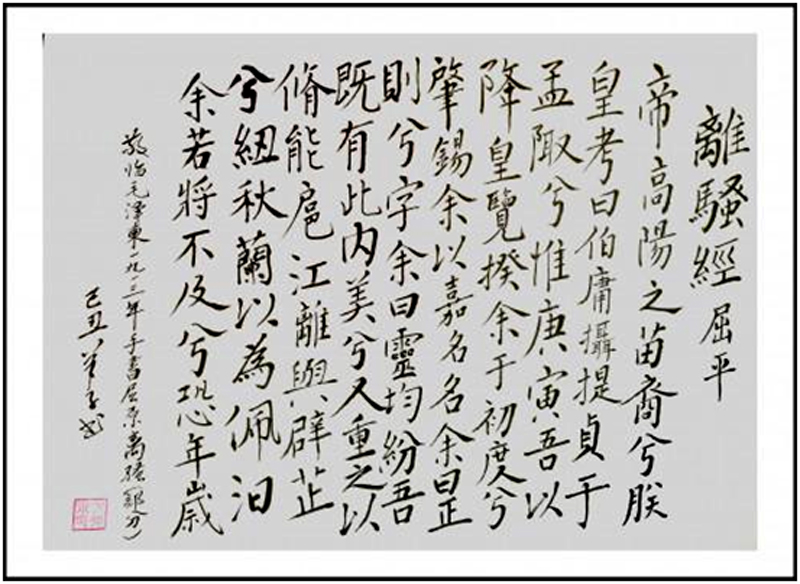 離騷經 屈平
帝高陽之苗裔兮朕
皇考曰伯庸攝提貞于
孟陬兮惟庚寅吾以
降皇覽揆余于初度兮
肇錫余以嘉名名余曰正
則兮字余曰靈均紛吾
既有此内美兮又重之以
脩能扈江離與辟芷
兮紐秋蘭以為佩汩
余若將不及兮恐年歲
敬临毛澤東一九一三年手書屈原离骚
己丑